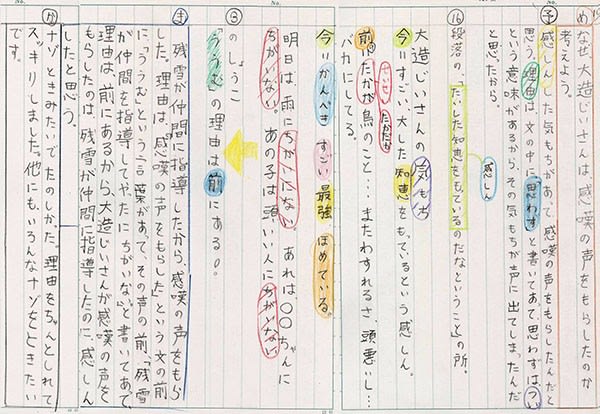 め なぜ大造じいさんは感嘆の声をもらしたのか
考えよう。
予 感しんした気もちがあって感嘆の声をもらしたんだと
思う。理由は、文の中に「思わず」と書いてあて、思わずは、つい
という意味があるから、その気もちが声に出てしまたんだ
と思ったから。
感しん
⑯
段落の、「たいした知恵をもっているのだなということ」の所。
大造じいさんの気もち
今=すごい、大した知恵をもっているという感しん。
たかだか
前=たかが鳥のこと…またわすれるさ、頭悪いし…
バカにしてる。
今=かんぺき すごい 最強 ほめている。
明日は、雨にちがいない。あれは、〇〇ちゃんに
ちがいない。あの子は頭いい人にちがいない
③
のしょうこ
「ううむ」の理由は前にある。
ま 残雪が仲間に指導したから、感嘆の声をもら
した。理由は、「感嘆の声をもらした」という文の前
に、「ううむ」という言葉があて、その声の前、「残雪
が仲間を指導してやったにちがいない」と書いてあて、
理由は、前にあるから、大造じいさんが感嘆の声を
もらしたのは、残雪が仲間に指導したのに、感しん
したと思う。
か ナゾときみたいでたのしかた。理由をちゃんとしれて
スッキリしました。他にもいろんなナゾをときたい
です。